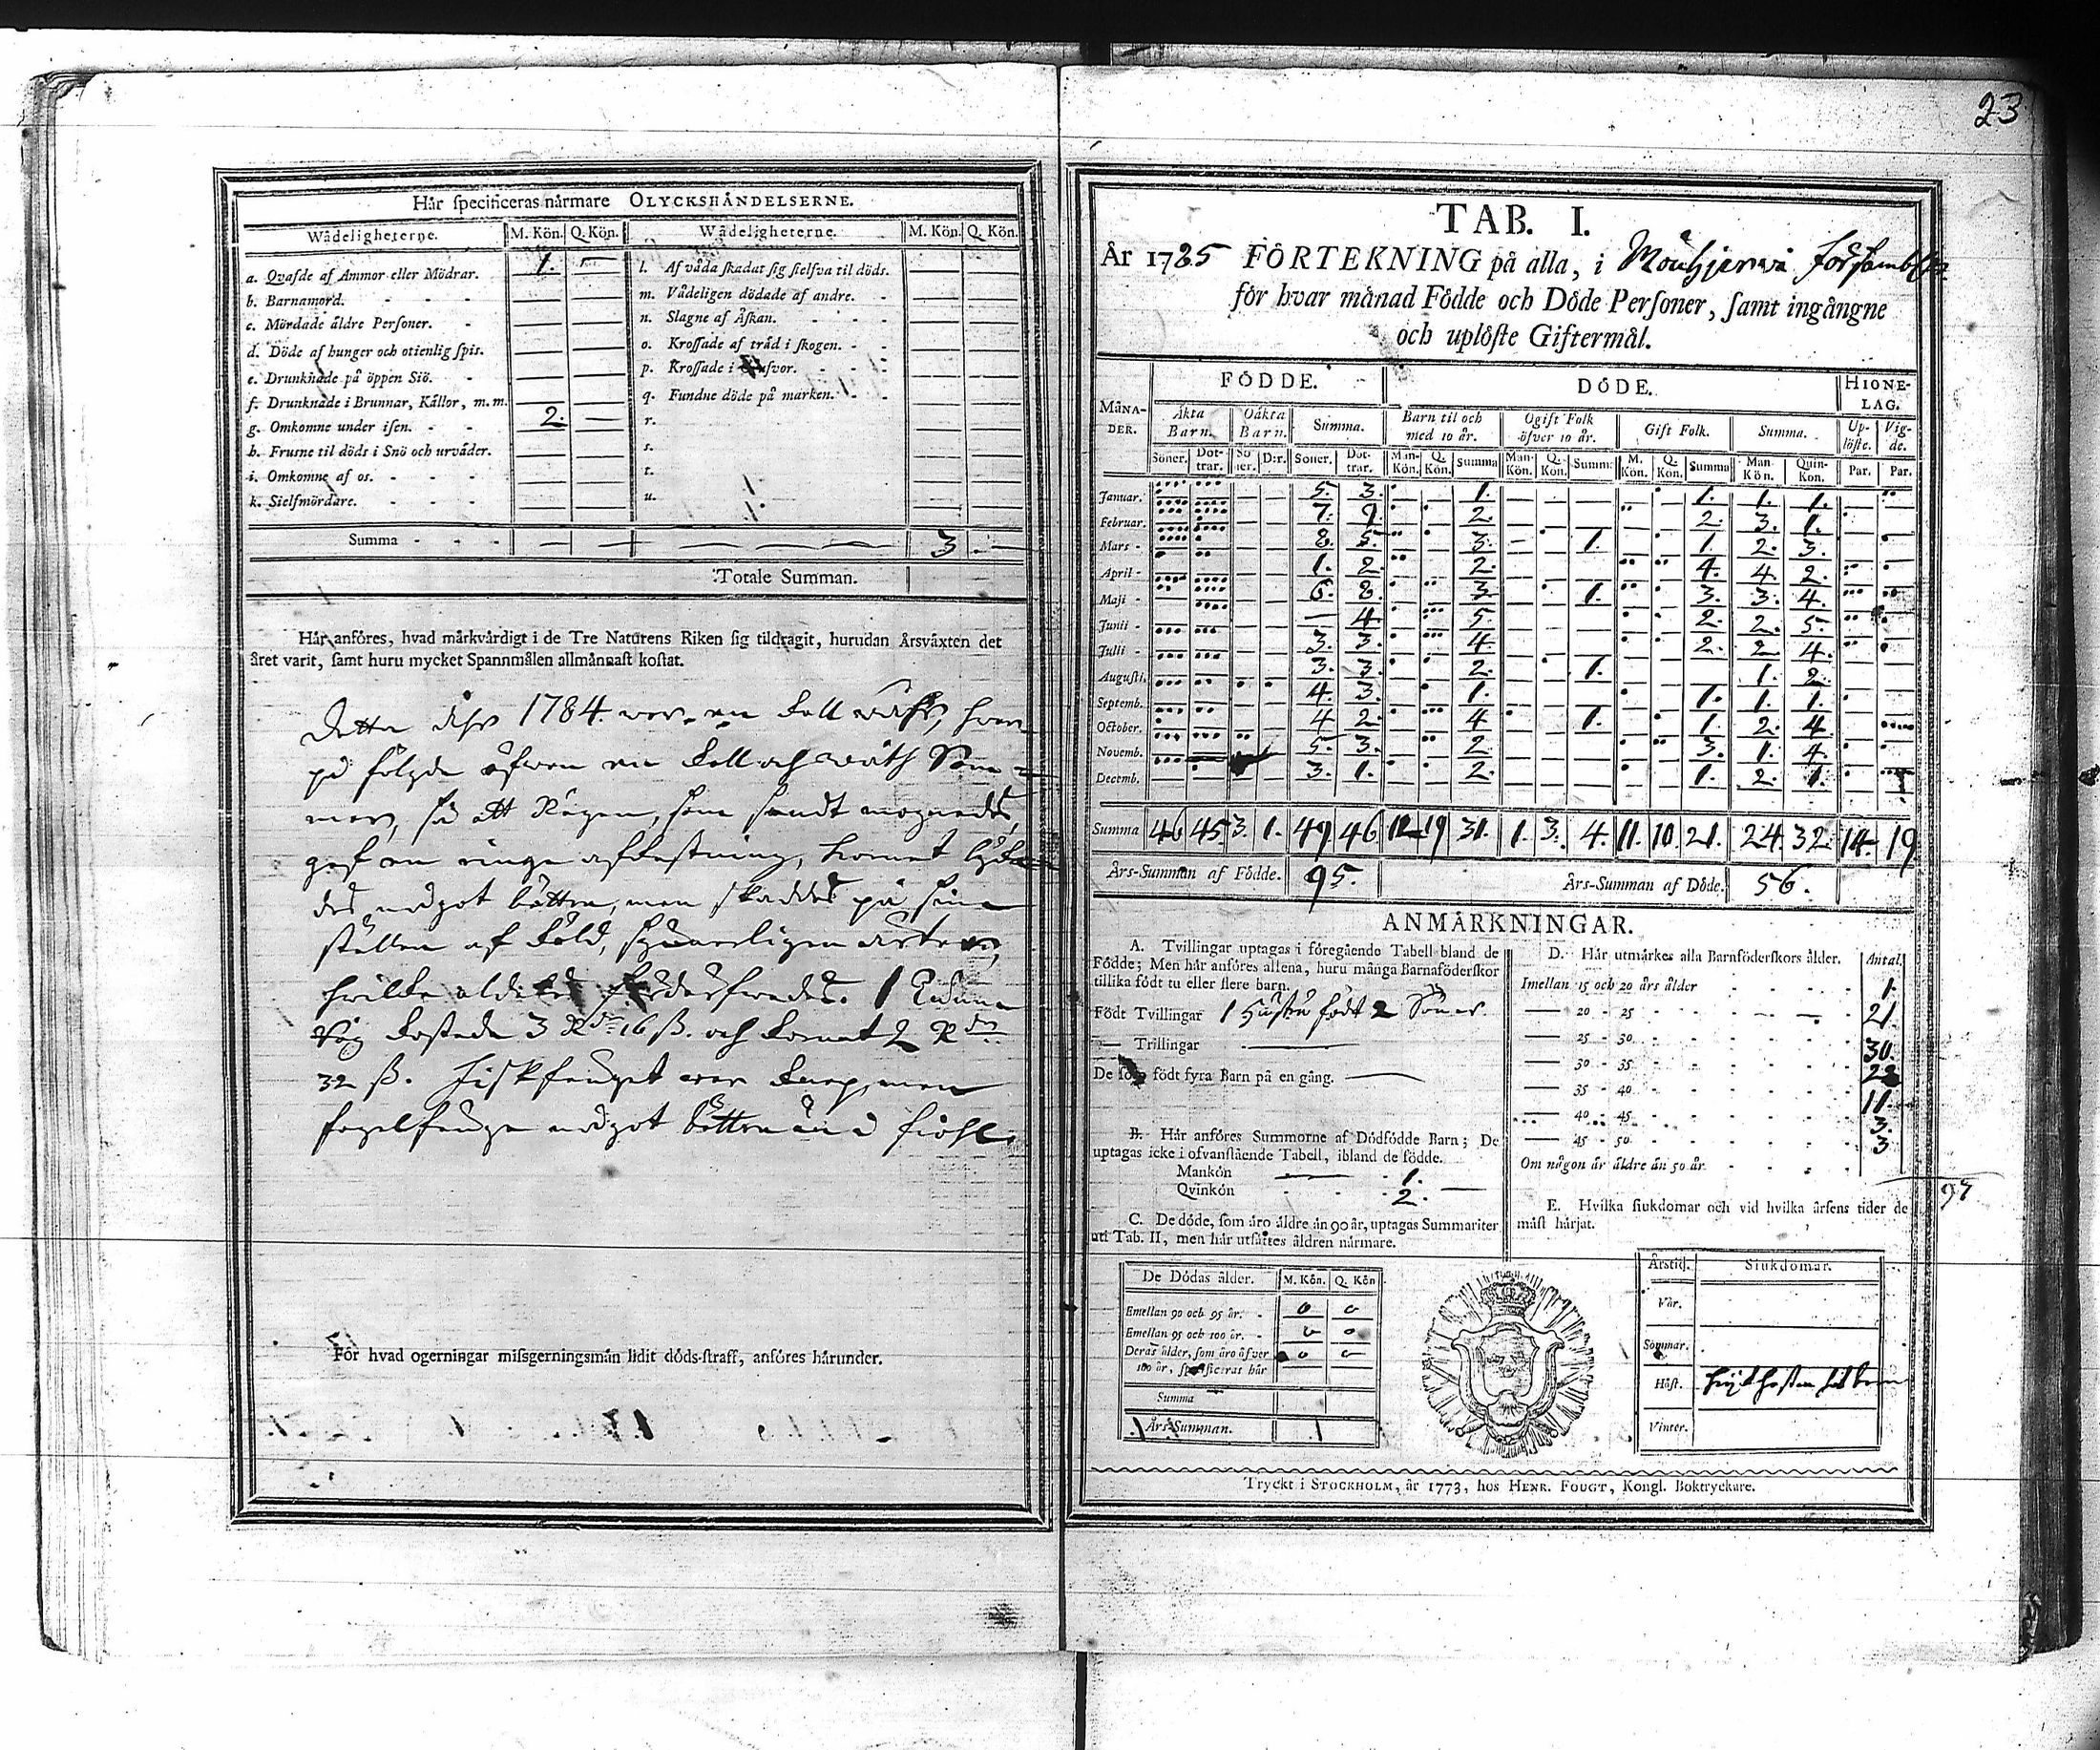 23
Hår specificeras nårmare OLYCKSHÅNDELSERNE.
Wådeligheterne. M. Kön. Q. Kön. Wådeligheterne. M. Kön. Q. Kön.
a. Qvafde af Ammor eller Mödrar. 1. — l. Af våda skadat sig sielfva til döds. — —
b. Barnamord. — — m. Vådeligen dödade af andre. — —
c. Mördade åldre Personer. — — n. Slagne af Åskan. — —
d. Döde af hunger och otienlig spis. — — o. Krossade af tråd i skogen. — —
e. Drunknade på öppen Siö. — — p. Krossade i — —
f. Drunknade i Brunnar, Kållor, m.m. — — q. Fundne döde på marken. — —
g. Omkomne under isen. 2. — r. — —
h. Frusne til döds i Snö och urvåder. — — s. — —
i. Omkomne af os. — — t. — —
k. Sielfmördare. — — u. — —
Summa — — 3. —
Totale Summan.
Hår anföres, hvad mårkvårdigt i de Tre Naturens Riken sig tildragit, hurudan Årsvåxten det
året varit, samt huru mycket Spannmålen allmånnast kostat.
Detta åhr 1784. war en kall
på följde åfwen en kall och wåth Som=
mar, så att Rågen, som
gaf en ringa kornet
des något båttre, men skaddes på sina
ställen af köld,
hwilka aldeles 1 Tunna
Råg kostade 3 Rdr 16 ß. och kornet 2 Rdr
32 ß. Fiskfånget war knap, men
fogelfånge något båttre än i fiohl.
För hvad ogerningar missgerningsmån lidit döds-straff, anföres hårunder.
TAB. I.
År 1785 FÖRTEKNING på alla, i Mouhijerwi Försambl:n
för hvar månad Födde och Döde Personer, samt ingångne
och uplöste Giftermål.
FÖDDE. DÖDE. HIONE-LAG.
MÅNADER. Åkta Barn. Oåkta Barn. Summa. Barn til och med 10 år. Ogift Folk öfver 10 år. Gift Folk. Summa. Uplöste. Vigde.
Söner. Dottrar. Söner. D:r. Söner. Dottrar. Man-Kön. Q. Kön. Summa Man-Kön. Q. Kön. Summ: M. Kön. Q. Kön. Summa Man-Kön. Quin-Kön. Par. Par.
Januar. 5. 3. 1. 1. 1. 1.
Februar. 7. 9. 2. 2. 3. 1.
Mars 8. 5. 3. 1. 1. 2. 3.
April 1. 2. 2. 4. 4. 2.
Maji 6. 8. 3. 1. 3. 3. 4.
Junii — 4. 5. 2. 2. 5.
Julii 3. 3. 4. 2. 2. 4.
Augusti. 3. 3. 2. 1. 1. 2.
Septemb. 4. 3. 1. 1. 1. 1.
October. 4 2. 4 1. 1 2. 4.
Novemb. 5. 3. 2. 3. 1. 4.
Decemb. 3. 1. 2. 1. 2. 1.
Summa 46 45 3. 1. 49. 46. 12 19 31. 1. 3. 4. 11. 10. 21. 24. 32. 14. 19
Års-Summan af Födde. 95. Års-Summan af Döde. 56.
ANMÅRKNINGAR.
A. Tvillingar uptagas i föregående Tabell bland de
Födde; Men hår anföres allena, huru många Barnaföderskor
tillika födt tu eller flere barn.
Födt Tvillingar 1 Hustru födt 2 Söner.
— Trillingar —
De som födt fyra Barn på en gång. —
B. Hår anföres Summorne af Dödfödde Barn; De
uptagas icke i ofvanstående Tabell, ibland de födde.
Mankön 1.
Qvinkön 2.
C. De döde, som åro åldre ån 90 år, uptagas Summariter
uti Tab. II, men hår utsåttes åldren nårmare.
De Dödas ålder. M. Kön. Q. Kön
Emellan 90 och 95 år. 0 0
Emellan 95 och 100 år. 0 0
Deras ålder, som åro öfver 0 0
100 år, specificeras hår
Summa
Års-Summan.
D. Hår utmårkes alla Barnföderskors ålder. Antal.
Imellan 15 och 20 års ålder 1.
— 20 - 25 21.
— 25 - 30 30.
— 30 - 35 28
— 35 - 40 11.
— 40 - 45 3.
— 45 - 50 3
Om någon år åldre ån 50 år.
97
E. Hvilka siukdomar och vid hvilka årsens tider de
måst hårjat.
Årstid. Siukdomar.
Vår.
Sommar.
Höst.
Vinter.
Tryckt i STOCKHOLM, år 1773, hos HENR. FOUGT, Kongl. Boktryckare.